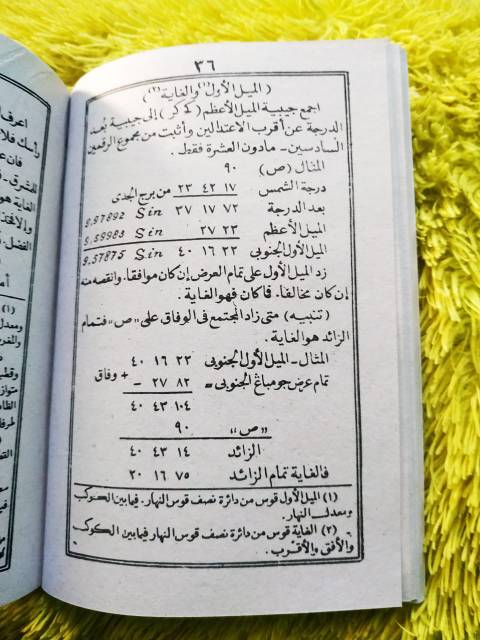 ٣٦
(الميل الأول(١) والغاية(٢))
اجمع جيبية الميل الأعظم (كج كز) إلى جيبية بُعد
الدرجة عن أقرب الاعتدالين وأثبت من مجموع الرقمين
السادسين - مادون العشرة فقط.
المثال (ص) ٩٠
درجة الشمس ١٧ ٤٢ ٢٣ من برج الجدى
بعد الدرجة ٧٢ ١٧ ٣٧ Sin 9,97892
الميل الأعظم ٢٣ ٢٧ Sin 9,59983
الميل الأول الجنوبى ٢٢ ١٦ ٤٠ Sin 9,57875
زد الميل الأول على تمام العرض إن كان موافقا، وانقصه منه
إن كان مخالفا، فما كان فهو الغاية.
(تنبيه) متى زاد المجتمع فى الوفاق على "ص" فتمام
الزائد هو الغاية.
المثال - الميل الأول الجنوبى ٢٢ ١٦ ٤٠
تمام عرض جومباغ الجنوبى = ٨٢ ٢٧ - + وفاق
١٠٤ ٤٣ ٤٠
"ص" ٩٠
الزائد ١٤ ٤٣ ٤٠
فالغاية تمام الزائد ٧٥ ١٦ ٢٠
(١) الميل الأول قوس من دائرة نصف قوس النهار. فيما بين الكوكب
ومعدل النهار.
(٢) الغاية قوس من دائرة نصف قوس النهار فيما بين الكوكب
والأفق والأقرب.